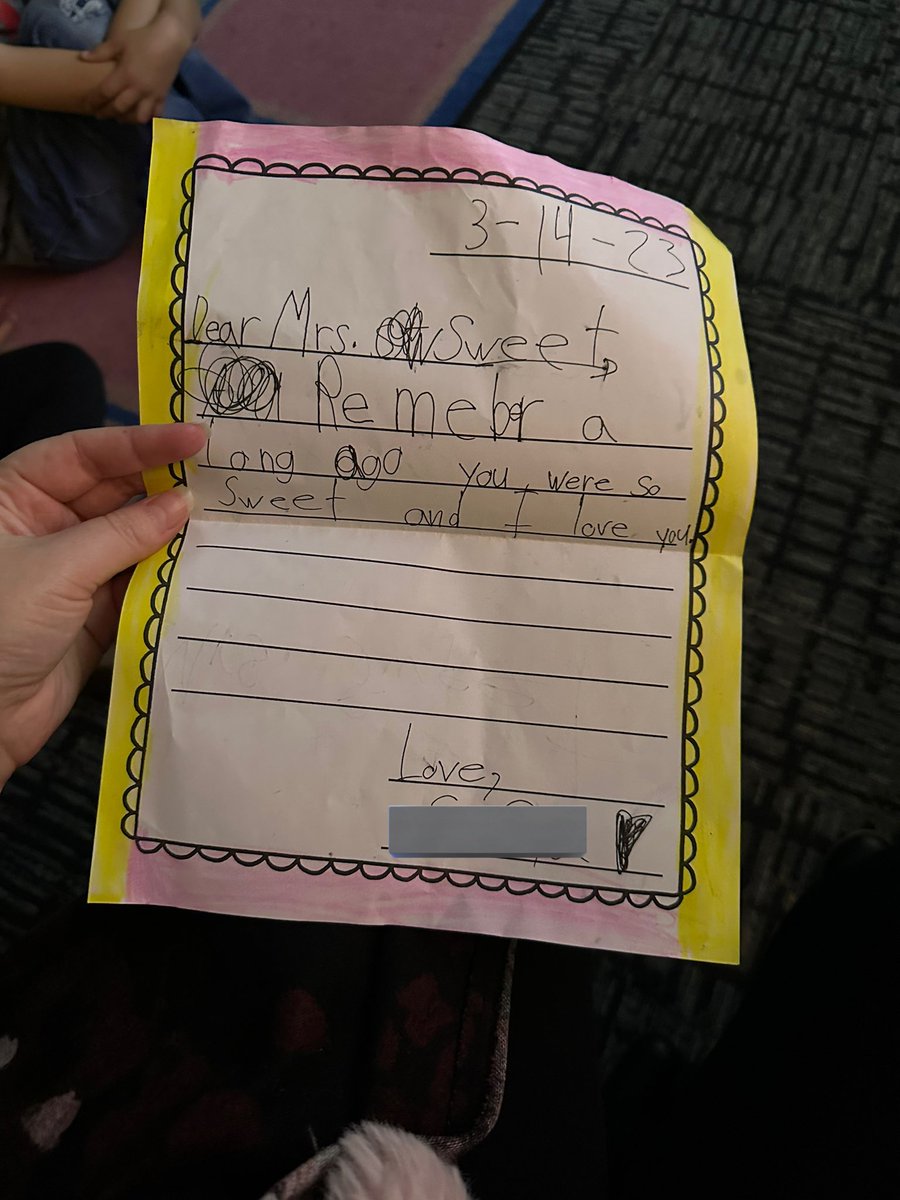 3-14-23
Dear Mrs. Sweet,
Remebr a
long ago you were so
Sweet and I love you.
Love,